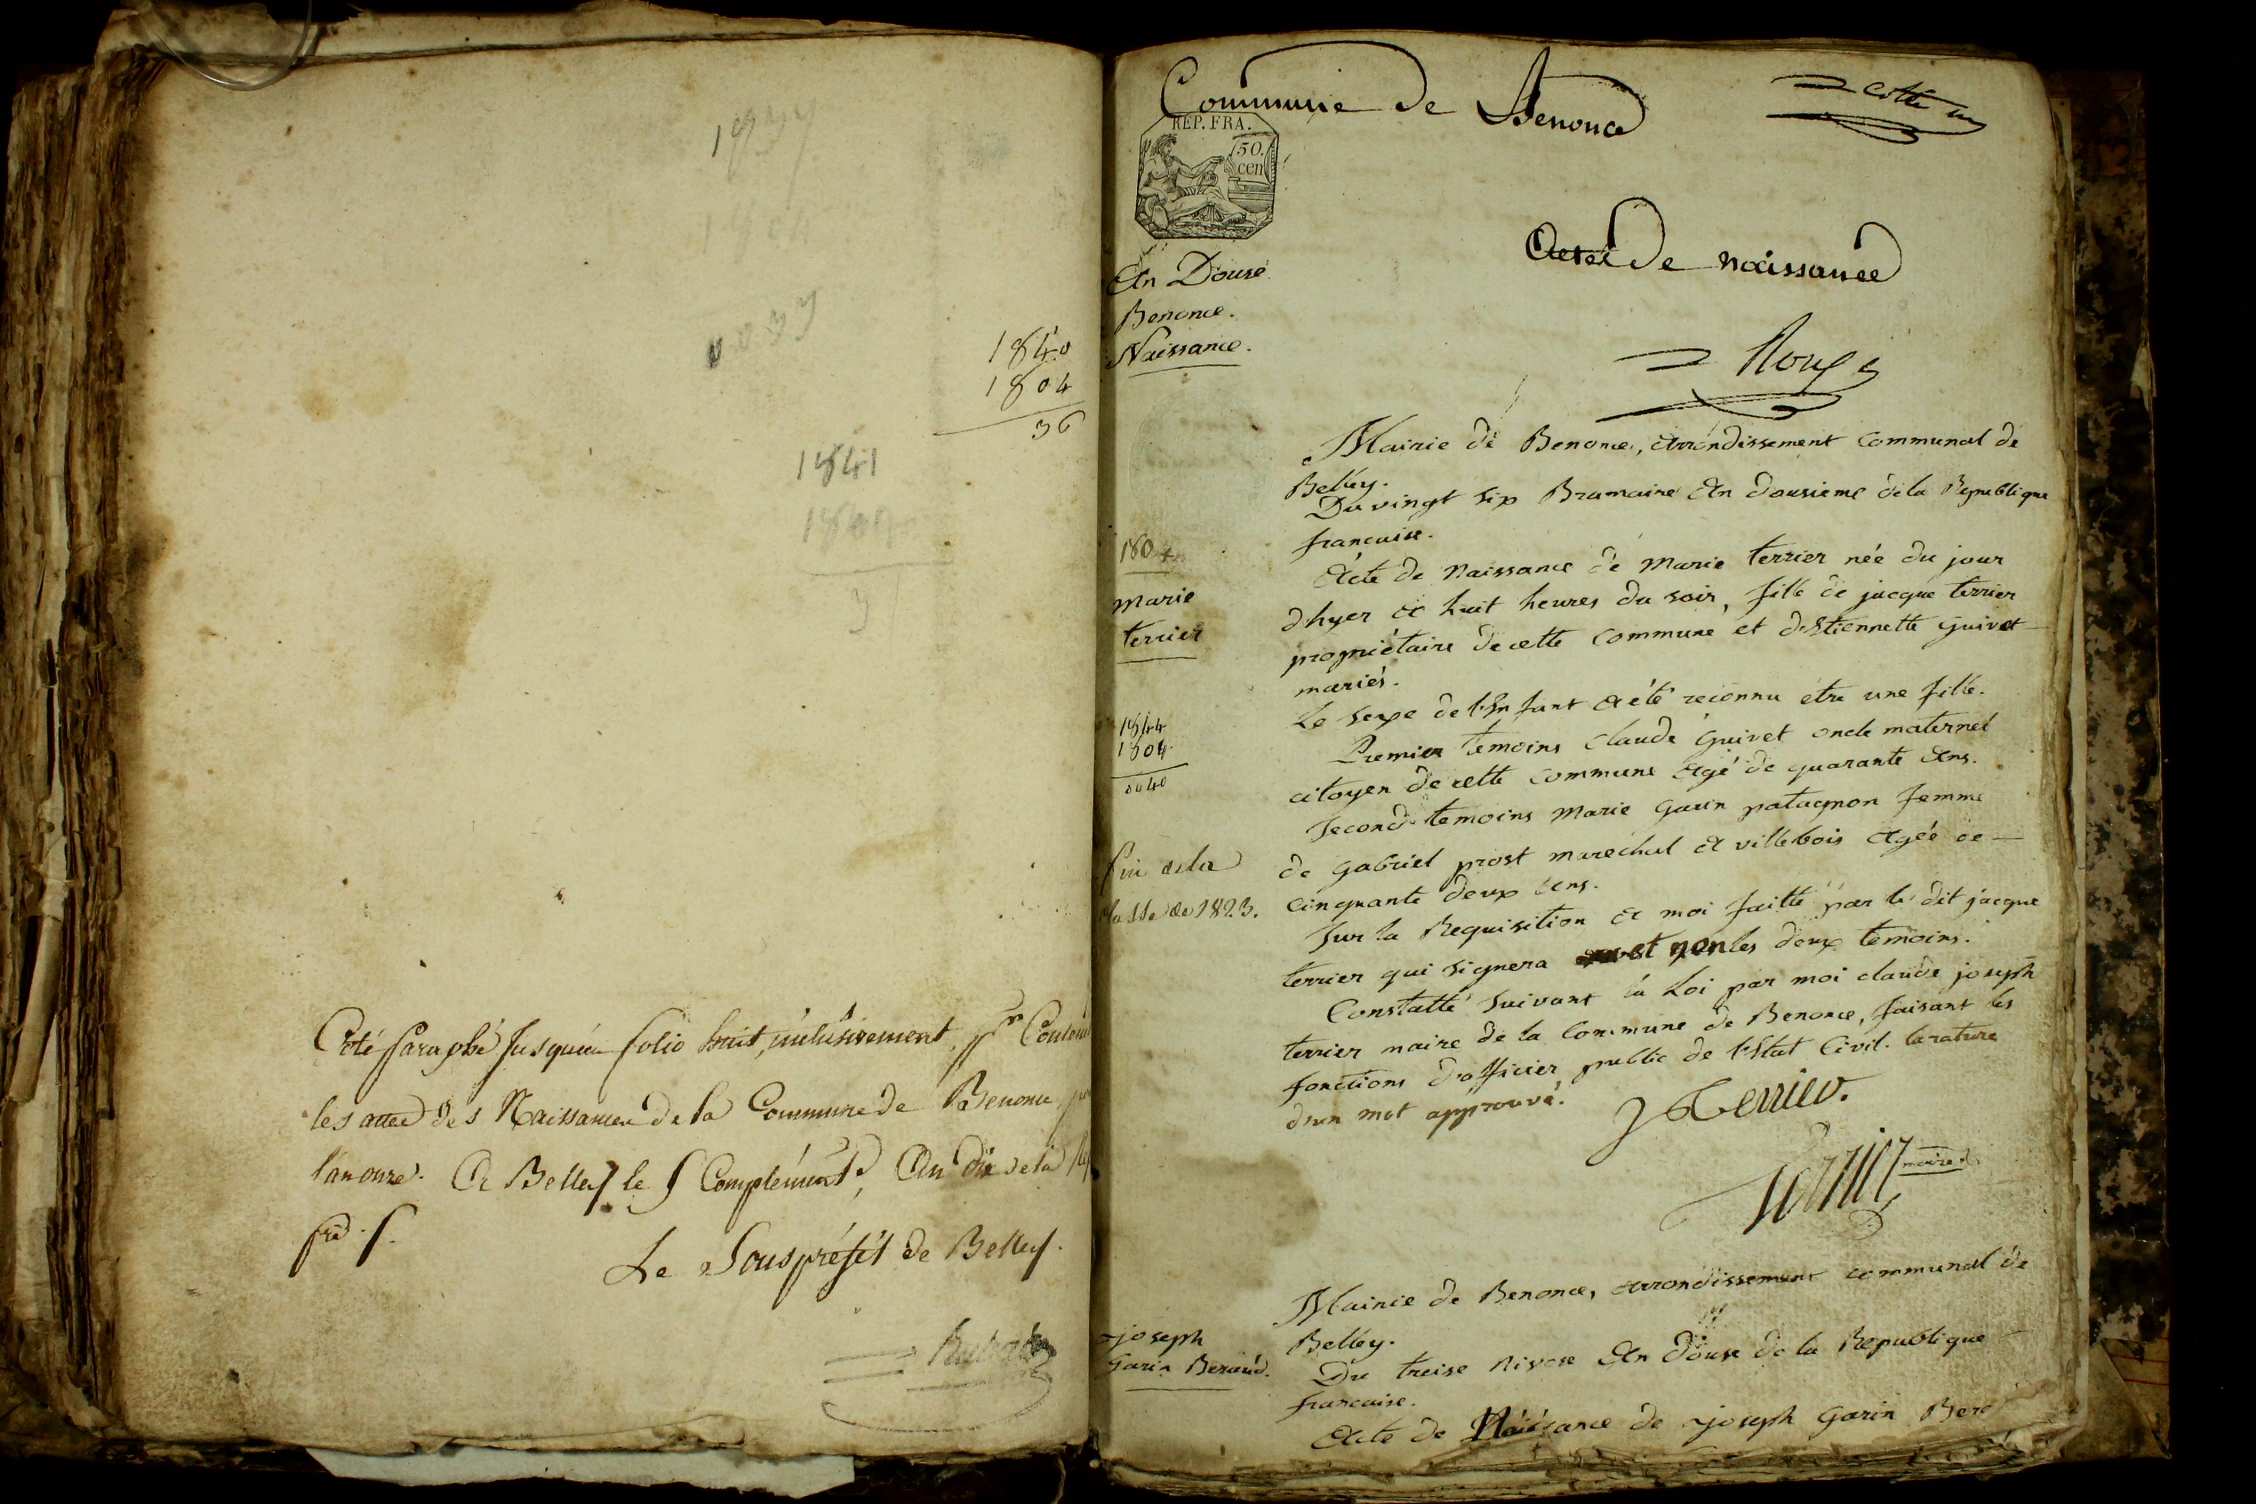 1840
1804
36
1841
Coté Paraphé Jusqu'au folio huit inclusivement, pr
les actes des Naissances de la Commune de Benonce
l'an onze. A Belley le 5 Complément.re An dix de la
Le Souspréfét de Belley.
Commune de Benonce
REP. FRA.
50.
cen
Actes de naissance
An Douse
Benonce.
Naissance.
Mairie de Benonce, arrondissement communal de
Belley.
Du vingt six Bramaire An dousieme de la Republique
francaise.
1804
Marie
terrier
Acte de Naissance de Marie terrier née du jour
dhyer a huit heures du soir, fille de jacque terrier
proprietaire de cette commune et dEtiennette guivet
mariés.
Le sexe de l'Enfant a été reconnu etre une fille.
1844
1804
0040
Premier temoins Claude guivet oncle maternel
citoyen de cette commune agé de quarante ans.
Second temoins Marie garin patagnon femme
de gabriel prost marechal a villebois agée de
cinquante deux ans.
fin de la
classe de 1823.
Sur la Requisition a moi faitte par le dit jacque
terrier qui signera et non les deux temoins.
Constatté suivant la Loi par moi claude joseph
terrier maire de la commune de Benonce, faisant les
fonctions d'officier public de l'Etat Civil. la rature
d'un mot approuvé.
J Terrier.
terrier maire
Mairie de Benonce, arrondissement communal de
Belley.
joseph
Garin Beraud.
Du treise Nivose An douse de la Republique
francaise.
Acte de Naissance de joseph garin